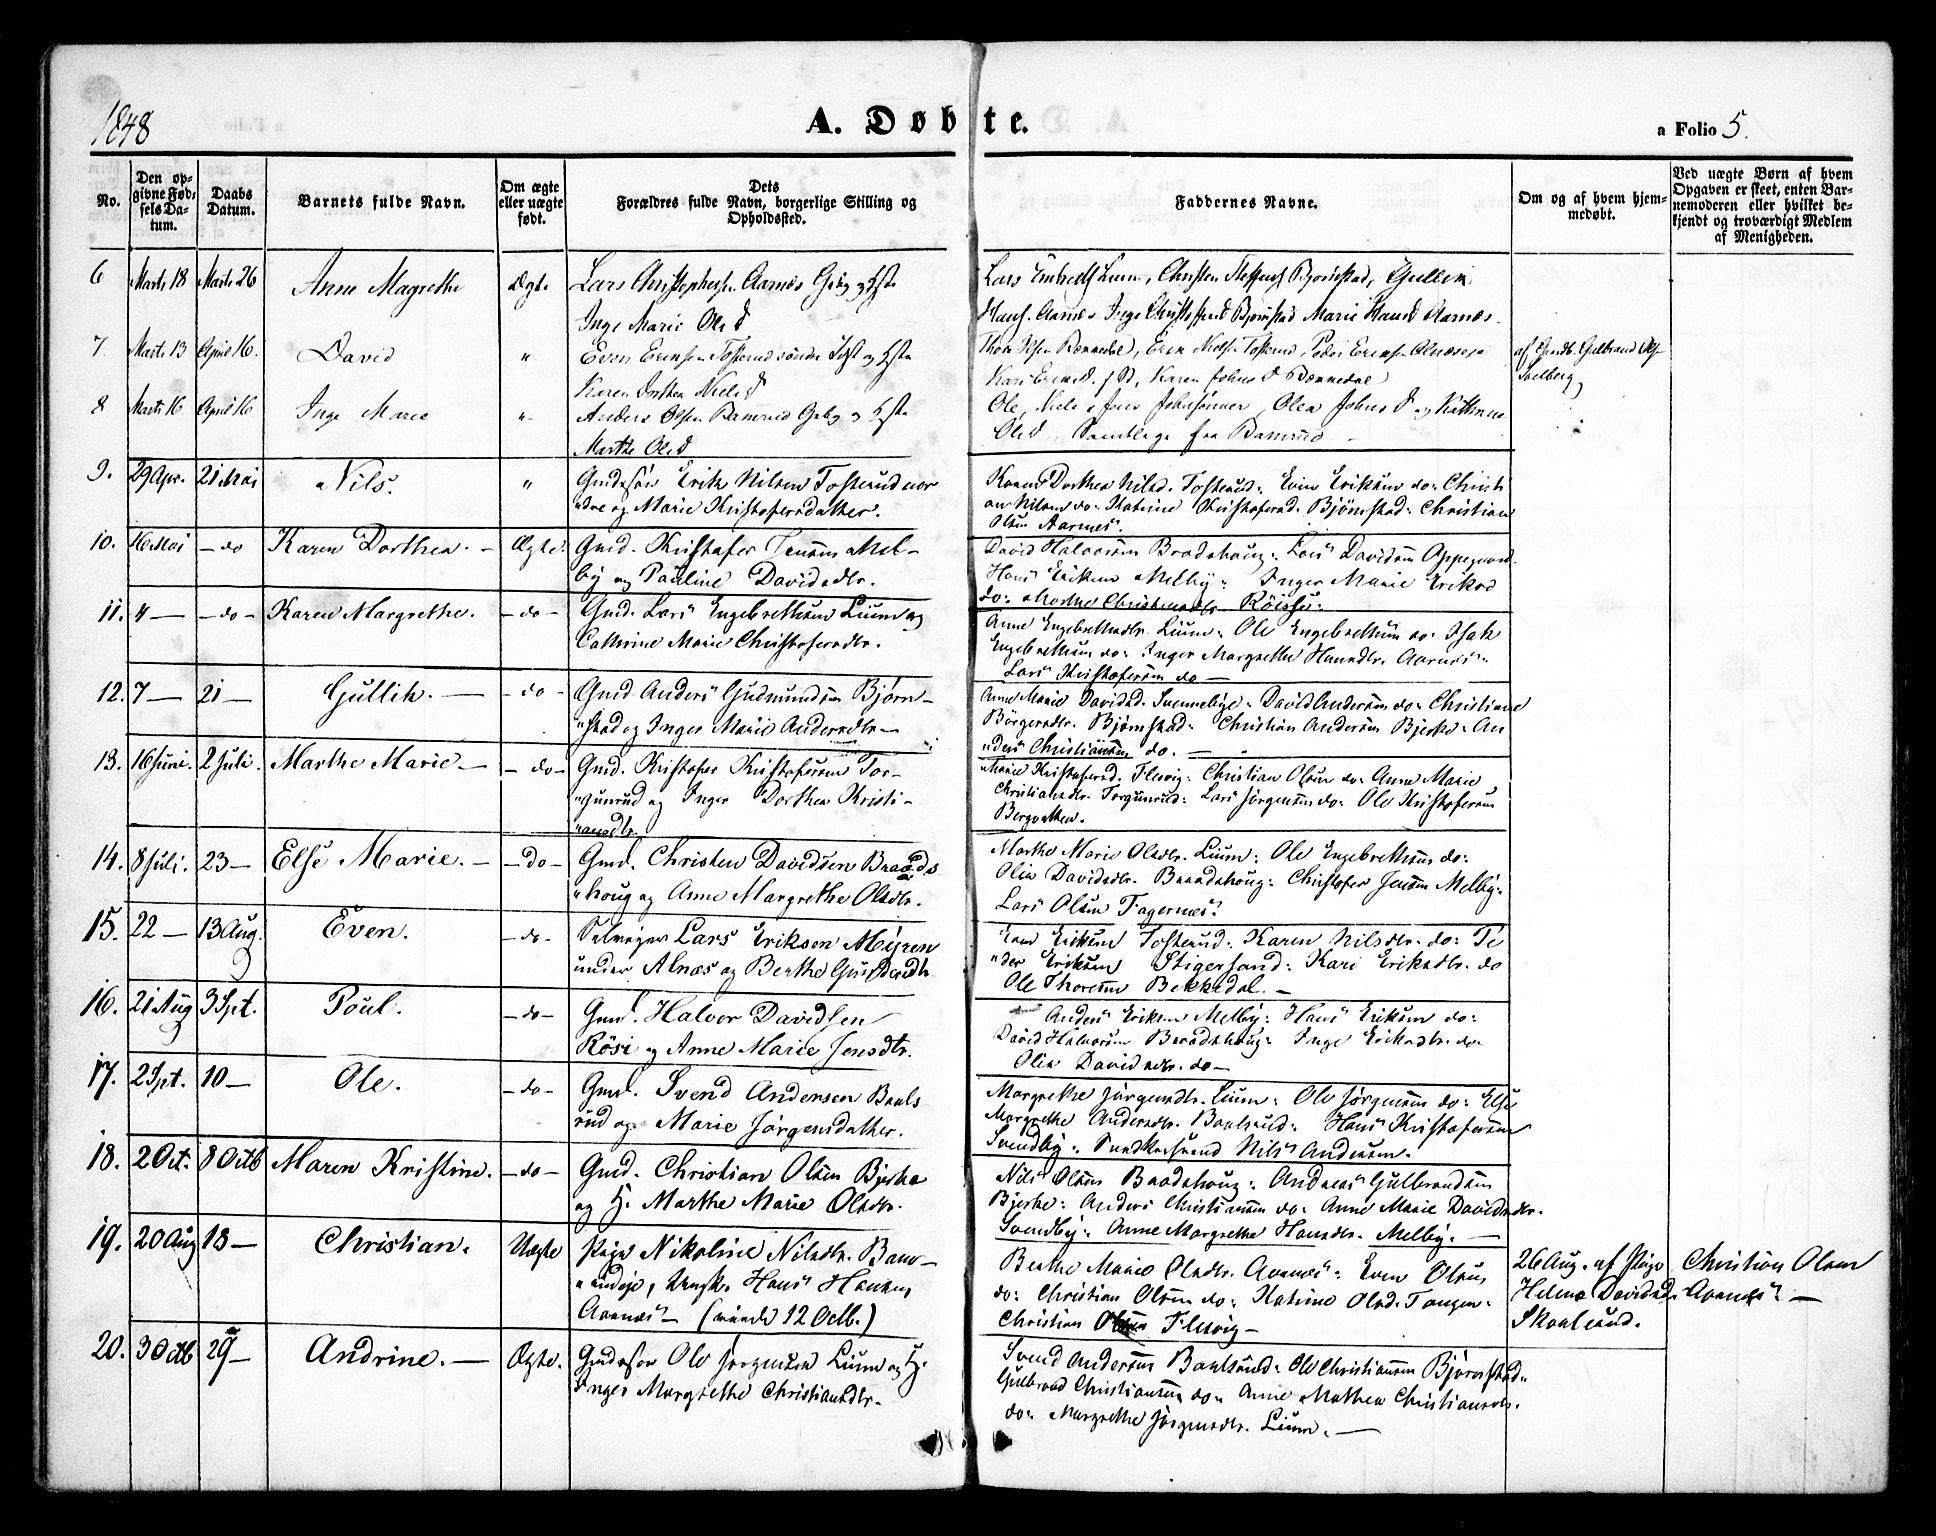 1848
A. Døbte.
a Folio 5.
No.
Den op-
givne Fød-
sels Da-
tum.
Daabs
Datum.
Barnets fulde Navn.
Om ægte
eller uægte
født.
Dets
Forældres fulde Navn, borgerlige Stilling og
Opholdssted.
Faddernes Navne.
Om og af hvem hjem-
medøbt.
Ved uægte Børn af hvem
Opgaven er skeet, enten Bar-
nemoderen eller hvilket be-
kjendt og troværdigt Medlem
af Menigheden.
6 Marts 18 Marts 26 Anne Magrethe Ægte Lars Christophersen Aarnes Gbg og Hst
Inge Marie Olsd
Lars Lium, Christen Bjørnstad, Gullik
Hans. Aarnes Inge Bjørnstad Marie Aarnes
7 Marts 13 April 16. David " Even Eriksen Tosterud søndre og Hst
Karen Dorthea Nielsd
Thore Olsen Bennedal, Erik Nielsen Tosterud, Peder Eriksen Alnæs
Kari Eriksd. Karen Johnsd Bennedal
af Gulbrand
8 Marts 16 April 16 Inge Marie " Anders Olsen Ramrud Gbg og Hst
Marthe Olsd
Ole, Niels Johnsønner, Olea Johnsd og
Olsd Samtlige fra Ramrud
9. 29 Apr. 21 Mai Nils. " Gmdssøn Erik Nilsen Tosterud nor
dre og Marie Kristofersdatter.
Karen Dorthea Nilsd. Tosterud: Even Eriksen do: Christi
an Nilsen do: Katrine Kristofersd. Bjørnstad: Christian
Olsen Aarnes.
10. 16 Mai – do Karen Dorthea. – Ægte. Gmd. Kristofer Jensen Mel-
by og Pauline Davidsdtr.
David Halvorsen Braadshoug: Lars Davidsen Oppegaard
Hans Eriksen Melby: Inger Marie Eriksd
do: Marthe Christensdtr
11. 4 – – do – Karen Margrethe. – do – Gmd. Lars Engebrethsen Lium og
Cathrine Marie Christofersdtr.
Anne Engebrethsdtr. Lium: Ole Engebrethsen do: Isak
Engebrethsen do: Inger Margrethe Hansdtr. Aarnes:
Lars Kristofersen do –
12. 7 – 21 – Gullik. – – do – Gmd. Anders Gudmundsen Bjørn-
stad og Inger Marie Andersdtr –
Anne Marie Davidsd. : David Andersen do: Christiane
Børgersdtr. Bjørnstad: Christian Andersen Bjerke: An
ders Christiansen do. –
13. 16 Juni. 2 Juli. Marthe Marie – – do – Gmd. Kristofer Kristofersen Tor-
gunrud og Inger Dorthea Kristi-
ansdtr.
Marie Kristofersd. Flesvig: Christian Olsen do: Anne Marie
Christiansdtr. Torgunrud: Lars Jørgensen do: Ole Kristofersen
14. 8 Juli. 23 – Else Marie. – – do – Gmd. Christen Davidsen Braads
houg og Anne Margrethe Olsdtr.
Marthe Marie Olsdtr. Lium: Ole Engebrethsen do:
Olia Davidsdtr. Braadshoug: Christofer Jensen Melby:
Lars Olsen Fagernes:
15. 22 – 13 Aug. Even. – do – Selveier Lars Eriksen Myren
under Alnæs og Berthe
Even Eriksen Tosterud: Karen Nilsdtr. do: Pe
der Eriksen Stigersand: Kari Eriksdtr. do
Ole Thoresen
16. 21 Aug 3 Spt. Poul. – do – Gmd. Halvor Davidsen
Røsi og Anne Marie Jensdtr.
Anders Eriksen Melby: Hans Eriksen do:
David Halvorsen Braadshoug: Inge Eriksdtr. do.
Olia Davidsdtr. do –
17. 2 Spt. 10 – Ole. – do – Gmd. Svend Andersen Baals
rud og Marie Jørgensdatter.
Margrethe Jørgensdtr. Lium: Ole Jørgensen do: Else
Margrethe Andersdtr. Baalsrud: Hans Kristofersen
Svendby: Nils Andersen.
18. 2 Oct. 8 Octb Maren Kristine. – do – Gmd. Christian Olsen Bjerke
og H. Marthe Marie Olsdtr.
Nils Olsen Braadshoug: Andreas Gulbrandsen
Bjerke: Anders Christiansen do: Anne Marie Davidsdtr.
Svendby: Anne Margrethe Hansdtr. Melby. –
19. 20 Aug 18 – Christian. Uægte Pige Nikoline Nilsdtr. Ram-
, Ungk. Hans Hansen
Aarnes – ( 12 Octb.)
Berthe Marie Olsdtr. Aarnes: Even Olsen
do: Christian Olsen do: Katrine Olsd. Tangen:
Christian Olsen Flesvig –
26 Aug. af Pige
Helene Davidsd.
Skaalsrud.
Christian Olsen
Aarnes: –
20. 3 Octb 29 – Andrine. – Ægte. Gmdssøn Ole Jørgensen Lium og H.
Inger Margrethe Christiansdtr.
Svend Andersen Baalsrud: Ole Christiansen Bjørnstad:
Gulbrand Christiansen do: Anne Mathea Christiansdtr.
do: Margrethe Jørgensdtr. Lium. –